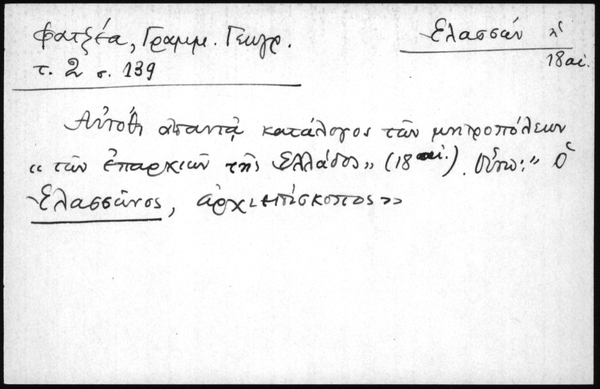 Φατζέα, Γραμμ. Γεωγρ.
τ. 2 σ. 139
Ελασσών
18 αἰ.
Αὐτόθι ἀπαντᾷ κατάλογος τῶν μητροπόλεων
« τῶν ἐπαρχιῶν τῆς Ελλάδος » (18 αἰ.). Οὕτω: " ὁ
Ελασσῶνος, ἀρχιεπίσκοπος »